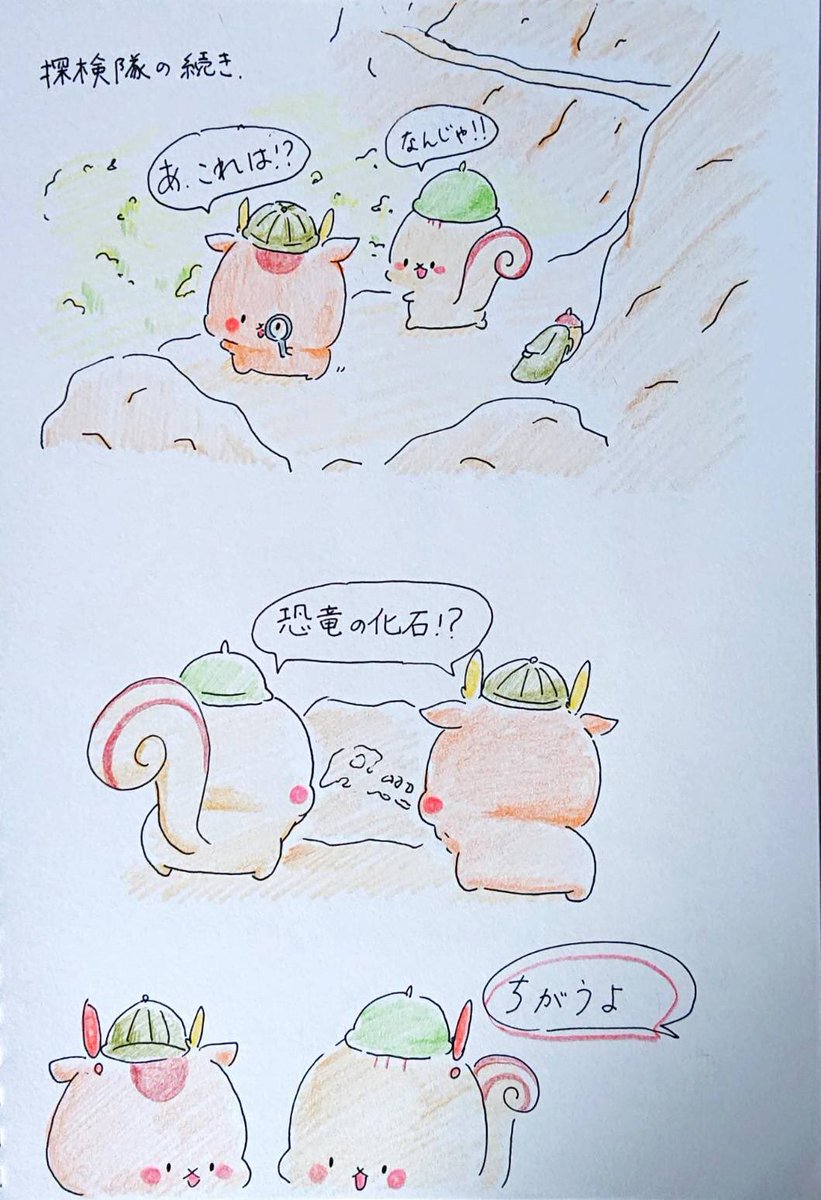 探検隊の続き.
なんじゃ!!
あ.これは!?
恐竜の化石!?
ちがうよ